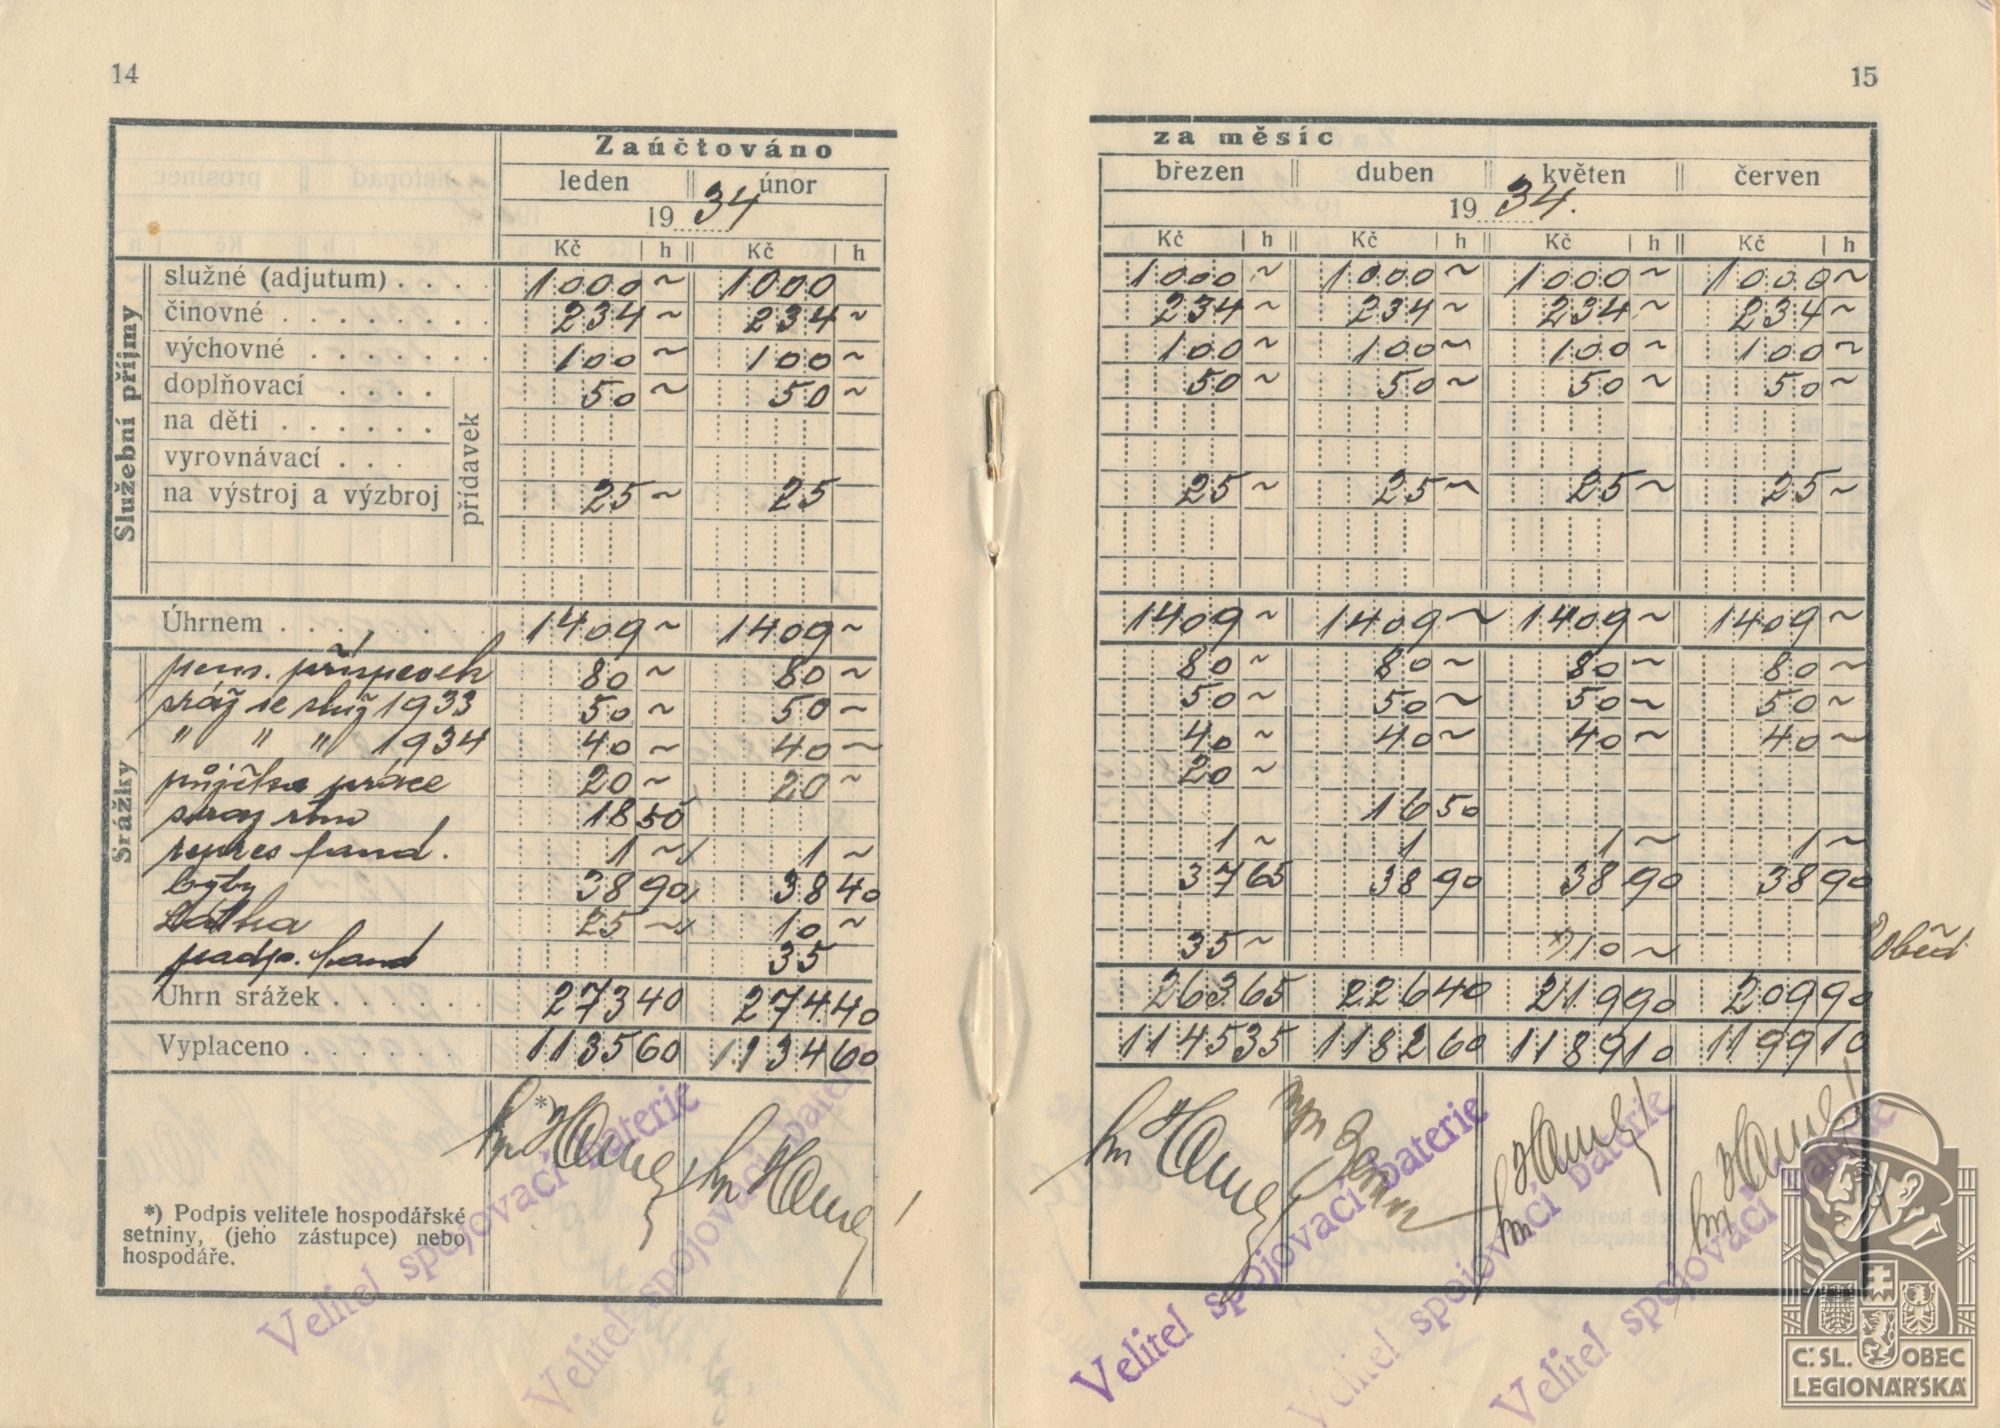 14
Zaúčtováno
leden únor
19 34
Kč h Kč h
Služební příjmy
služné (adjutum) . . . . 1000 ~ 1000
činovné . . . . . . . . 234 ~ 234 ~
výchovné . . . . . . . 100 ~ 100 ~
doplňovací . . . . 50 ~ 50 ~
na děti . . . . . .
vyrovnávací . . .
na výstroj a výzbroj 25 ~ 25
přídavek
Úhrnem . . . . . . . 1409 ~ 1409 ~
Srážky
pens. příspěvek 80 ~ 80 ~
sráž ze služ 1933 50 ~ 50 ~
" " " 1934 40 ~ 40 ~
půjčka práce 20 ~ 20 ~
18 50
repres fand. 1 ~ 1 ~
byty 38 90 38 40
Látka 25 ~ 10 ~
podp. fand 35
Úhrn srážek . . . . . 273 40 274 40
Vyplaceno . . . . . . 1135 60 1134 60
*)
*) Podpis velitele hospodářské
setniny, (jeho zástupce) nebo
hospodáře.
Velitel spojovací baterie
Velitel spojovací baterie
15
za měsíc
březen duben květen červen
19 34.
Kč h Kč h Kč h Kč h
1000 ~ 1000 ~ 1000 ~ 1000 ~
234 ~ 234 ~ 234 ~ 234 ~
100 ~ 100 ~ 100 ~ 100 ~
50 ~ 50 ~ 50 ~ 50 ~
25 ~ 25 ~ 25 ~ 25 ~
1409 ~ 1409 ~ 1409 ~ 1409 ~
80 ~ 80 ~ 80 ~ 80 ~
50 ~ 50 ~ 50 ~ 50 ~
40 ~ 40 ~ 40 ~ 40 ~
20 ~
16 50
1 ~ 1 1 ~ 1 ~
37 65 38 90 38 90 38 90
35 ~ 10 ~
Oběd
263 65 226 40 219 90 209 90
1145 35 1182 60 1189 10 1199 10
Velitel spojovací baterie
Velitel spojovací baterie
Velitel spojovací baterie
Č. SL. OBEC
LEGIONÁŘSKÁ